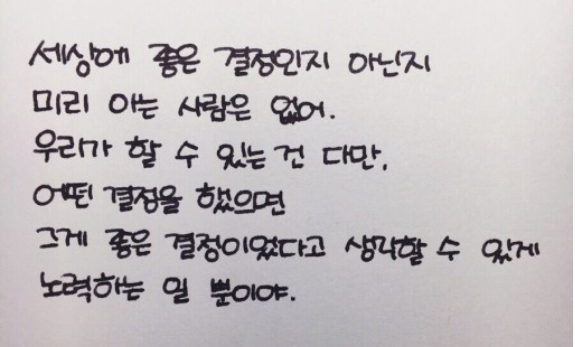 세상에 좋은 결정인지 아닌지
미리 아는 사람은 없어.
우리가 할 수 있는 건 다만,
어떤 결정을 했으면
그게 좋은 결정이었다고 생각할 수 있게
노력하는 일 뿐이야.